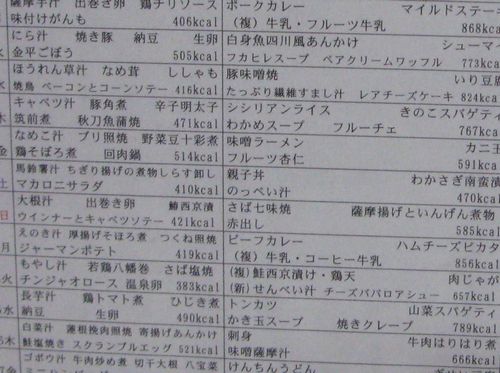 薩摩芋汁 出巻き卵 鶏チリソース
味付けがんも 406kcal
にら汁 焼き豚 納豆 生卵
金平ごぼう 505kcal
ほうれん草汁 なめ茸 ししゃも
水 焼鳥 ベーコンとコーンソテー 416kcal
キャベツ汁 豚角煮 辛子明太子
木 筑前煮 秋刀魚蒲焼 471kcal
なめこ汁 ブリ照焼 野菜豆十彩煮
金 鶏そぼろ煮 回肉鍋 514kcal
馬鈴薯汁 ちぎり揚げの煮物 しらす卸し
土 マカロニサラダ 410kcal
大根汁 出巻き卵 鯵西京漬
日 ウインナーとキャベツソテー 421kcal
えのき汁 厚揚げそぼろ煮 つくね照焼
月 ジャーマンポテト 419kcal
もやし汁 若鶏八幡巻 さば塩焼
火 チンジャオロース 温泉卵 383kcal
長芋汁 鶏トマト煮 ひじき煮
水 納豆 生卵 490kcal
白菜汁 蓮根挽肉照焼 寄揚げあんかけ
木 鮭塩焼き スクランブルエッグ 521kcal
ゴボウ汁 牛肉炒め煮 切干大根 八宝菜
ポークカレー マイルドステー
(複)牛乳・フルーツ牛乳 868kcal
白身魚四川風あんかけ シューマ
フカヒレスープ ペアクリームワッフル 773kcal
豚味噌焼 いり豆腐
たっぷり繊維すまし汁 レアチーズケーキ 824kca
シシリアンライス きのこスパゲティ
わかめスープ フルーチェ 767kcal
味噌ラーメン カニ玉
フルーツ杏仁 591kcal
親子丼 わかさぎ南蛮漬
のっぺい汁 470kcal
さば七味焼 薩摩揚げといんげん煮物
赤出し 585kcal
ビーフカレー ハムチーズピカタ
(複)牛乳・コーヒー牛乳 856kcal
(複)鮭西京漬け・鶏天 肉じゃが
(新)せんべい汁 チーズババロアシュー 657kcal
トンカツ 山菜スパゲティ
かき玉スープ 焼きクレープ 789kcal
刺身 牛肉はりはり煮
味噌薩摩汁 666kcal
けんちんうどん